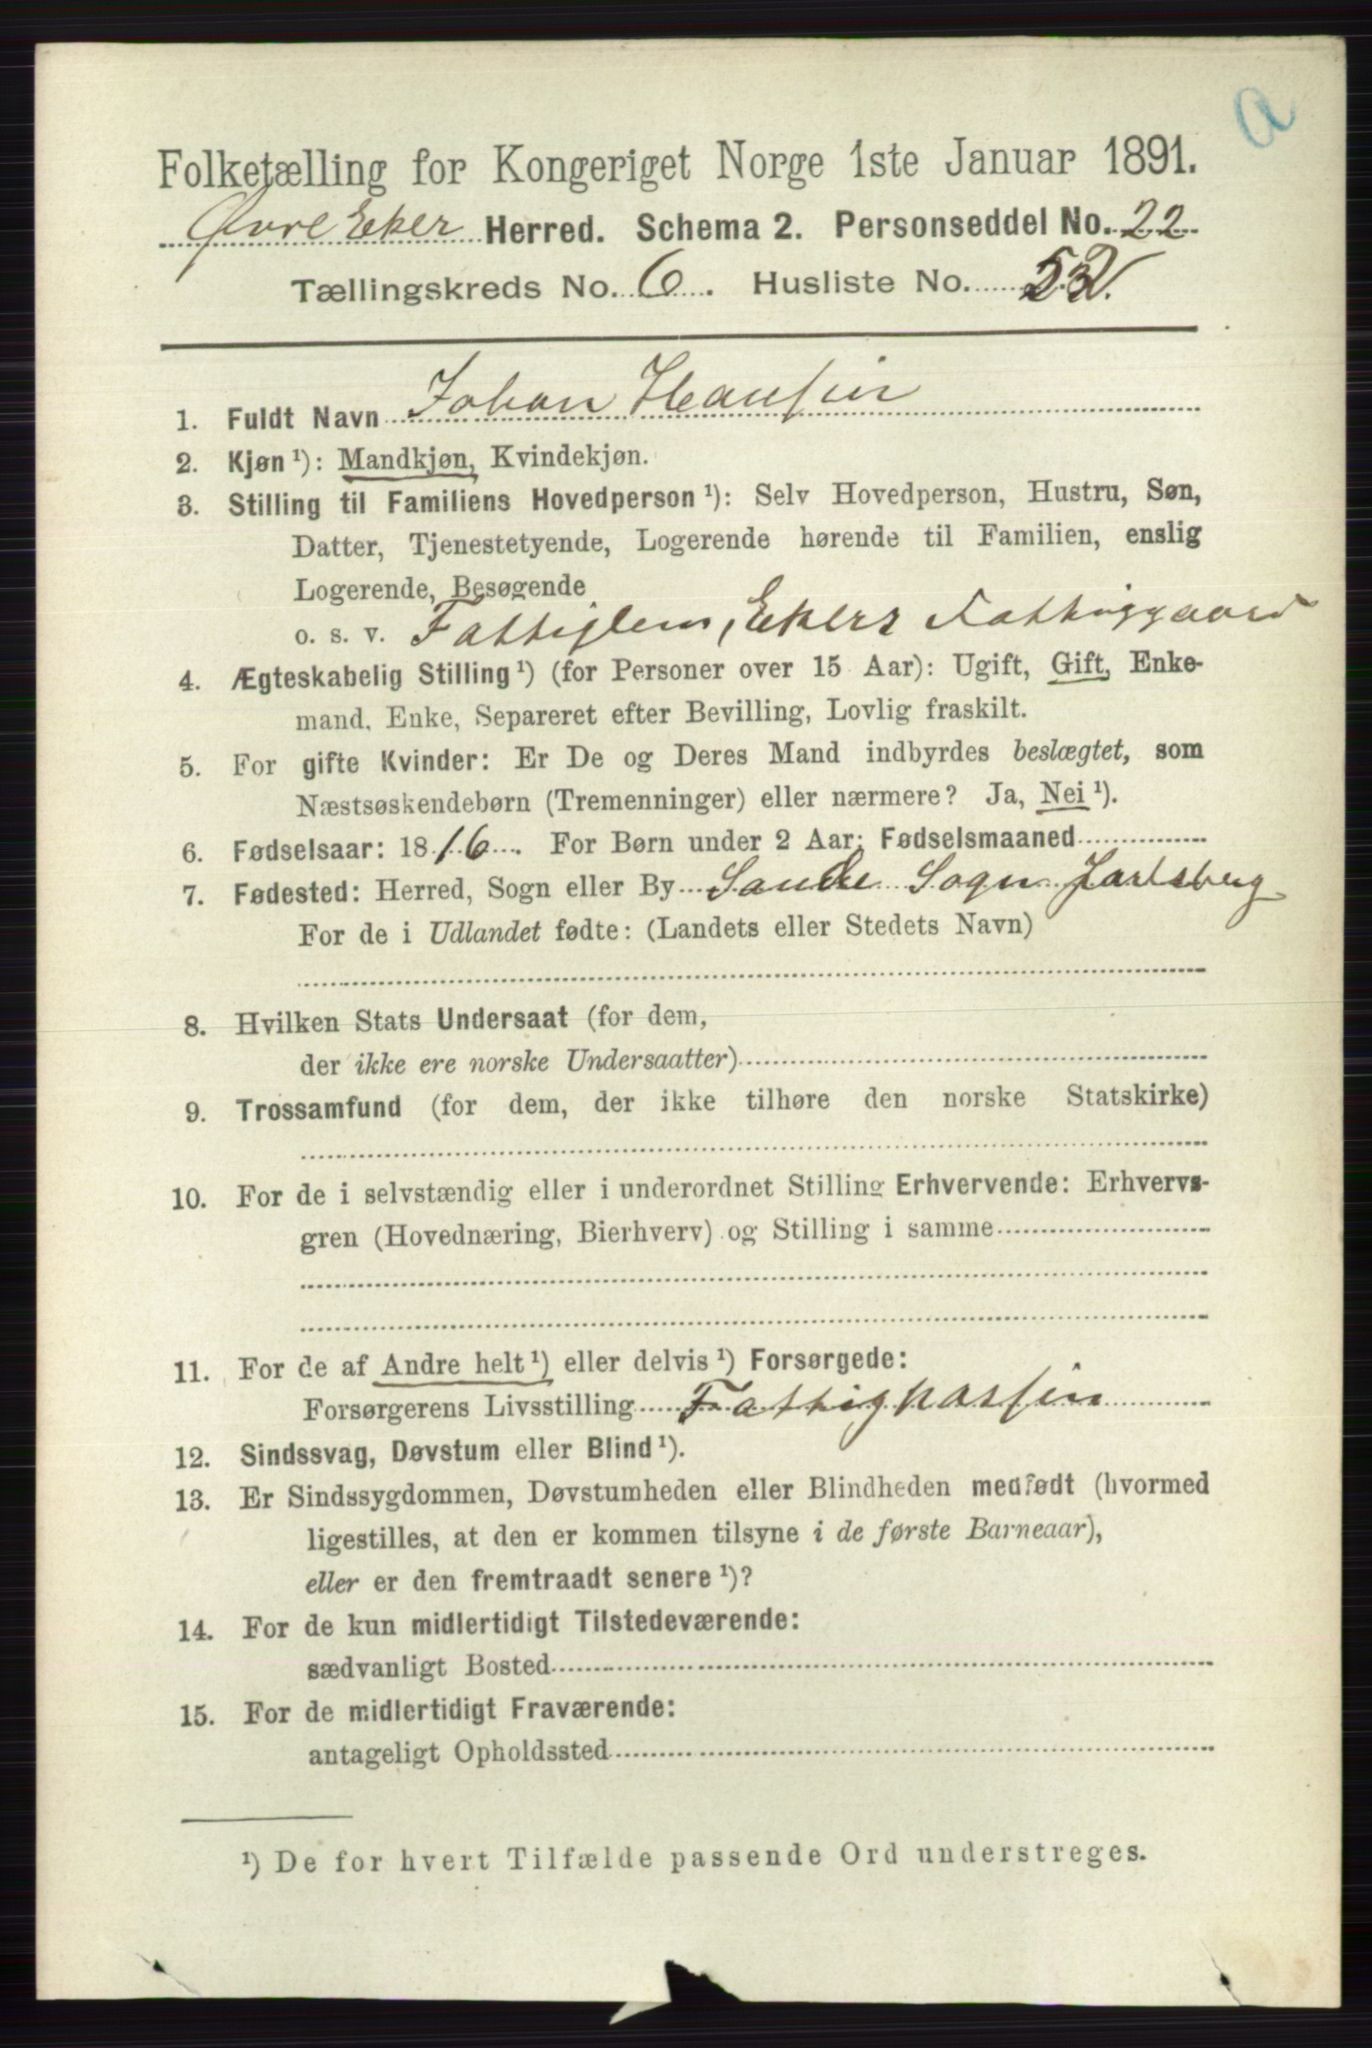 a
Folketælling for Kongeriget Norge 1ste Januar 1891.
Øvre Eker Herred. Schema 2. Personseddel No. 22
Tællingskreds No. 6. Husliste No.
1. Fuldt Navn Johan Hansen
2. Kjøn ¹): Mandkjøn, Kvindekjøn.
3. Stilling til Familiens Hovedperson ¹): Selv Hovedperson, Hustru, Søn,
Datter, Tjenestetyende, Logerende hørende til Familien, enslig
Logerende, Besøgende
o. s. v. Fattiglem, Ekers Fattiggaard
4. Ægteskabelig Stilling ¹) (for Personer over 15 Aar): Ugift, Gift, Enke-
mand, Enke, Separeret efter Bevilling, Lovlig fraskilt.
5. For gifte Kvinder: Er De og Deres Mand indbyrdes beslægtet, som
Næstsøskendebørn (Tremenninger) eller nærmere? Ja, Nei ¹).
6. Fødselsaar: 1816. For Børn under 2 Aar: Fødselsmaaned
7. Fødested: Herred, Sogn eller By Sande Sogn Jarlsberg
For de i Udlandet fødte: (Landets eller Stedets Navn)
8. Hvilken Stats Undersaat (for dem,
der ikke ere norske Undersaatter)
9. Trossamfund (for dem, der ikke tilhøre den norske Statskirke)
10. For de i selvstændig eller i underordnet Stilling Erhvervende: Erhvervs-
gren (Hovednæring, Bierhverv) og Stilling i samme
11. For de af Andre helt ¹) eller delvis ¹) Forsørgede:
Forsørgerens Livsstilling Fattigkassen
12. Sindssvag, Døvstum eller Blind ¹).
13. Er Sindssygdommen, Døvstumheden eller Blindheden medfødt (hvormed
ligestilles, at den er kommen tilsyne i de første Barneaar),
eller er den fremtraadt senere ¹)?
14. For de kun midlertidigt Tilstedeværende:
sædvanligt Bosted
15. For de midlertidigt Fraværende:
antageligt Opholdssted
¹) De for hvert Tilfælde passende Ord understreges.